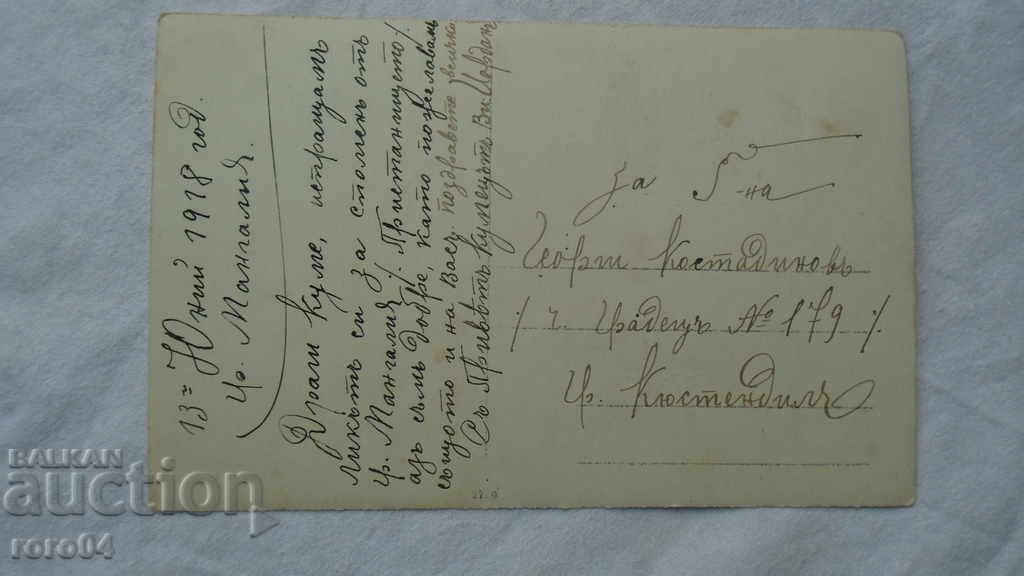 13ᵃ Юний 1918 год.
гр. Мангалия.
Драги Куме, испращамъ
ликътъ си за споменъ отъ
гр. Мангалия /. Пристанището /.
азъ съмъ добре, като пожелавамъ
същото и на Васъ. поздравете всички
Съ Приветъ: Кумецътъ Ви Йорданъ
за Г-на
Георги Костадиновъ
/ ч. Градецъ № 179 /.
гр. Кюстендилъ
BALKAN
auction
roro04